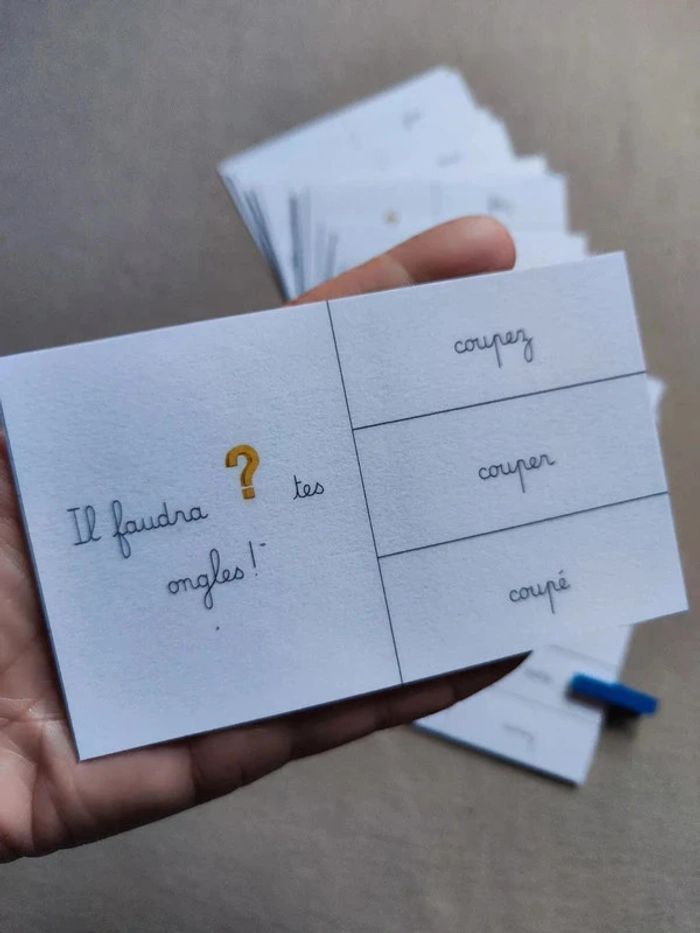 Il faudra ? tes
ongles!
coupez
couper
coupé